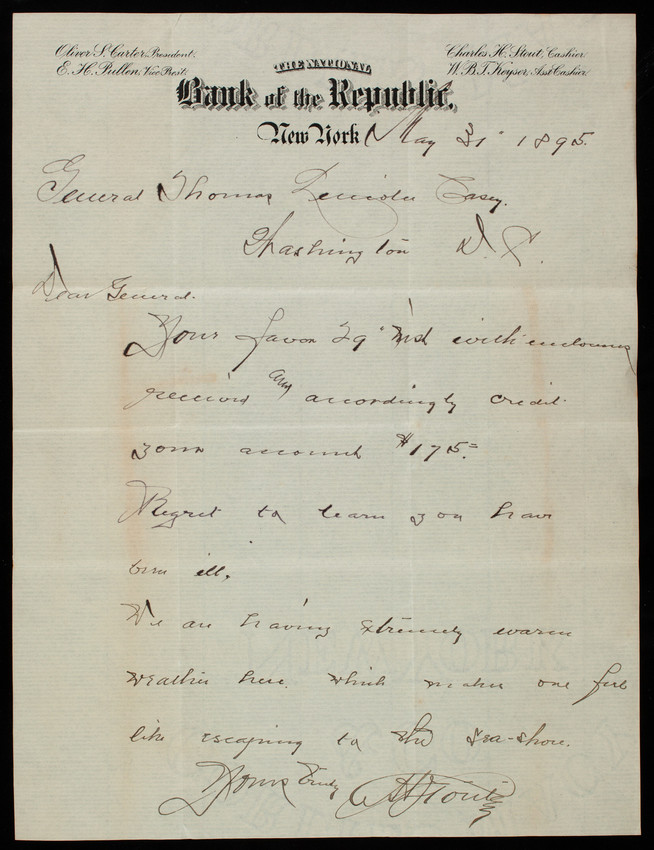 Oliver S. Carter, President.
E. H. Pullen, Vice Prest.
Charles H. Stout, Cashier.
W. B. T. Keyser, Asst Cashier.
THE NATIONAL
Bank of the Republic.
New York May 31" 1895.
General Thomas Lincoln Casey.
Washington D. C.
Dear General.
Your favor 29" inst with enclosures
received and accordingly credit
your account $175.=
Regret to learn you have
been ill.
We are having extremely warm
weather here. which makes one feel
like escaping to the sea-shore.
Yours truly C H Stout